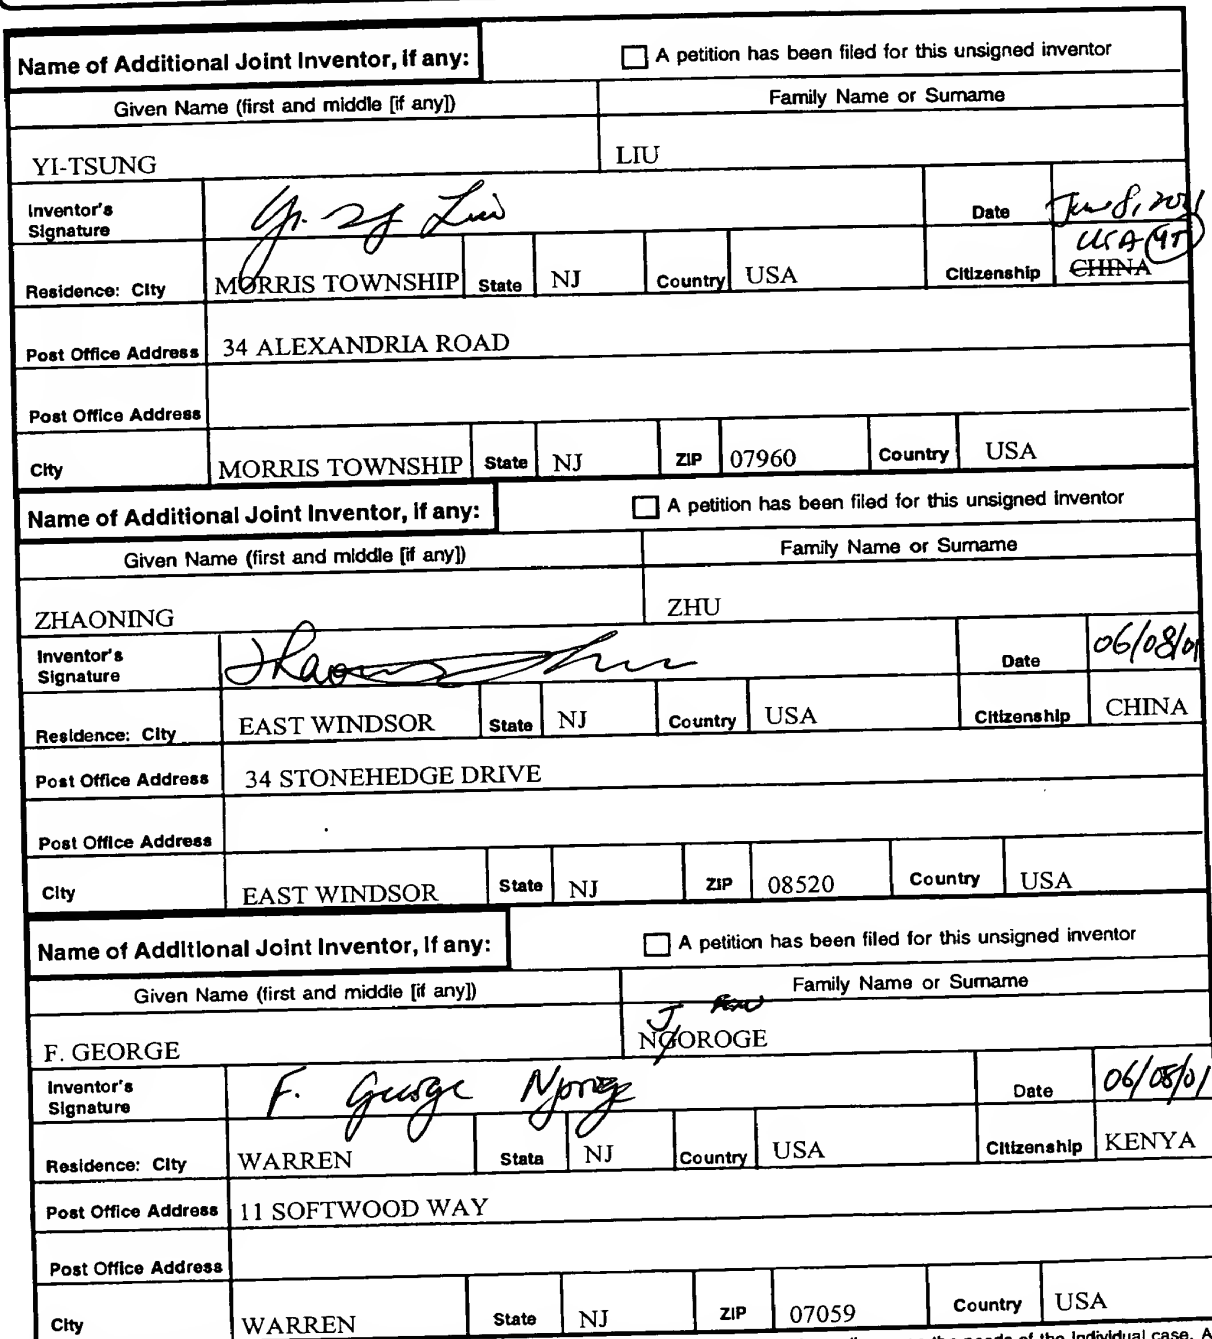 Name of Additional Joint Inventor, if any: A petition has been filed for this unsigned inventor
Given Name (first and middle [if any]) Family Name or Surname
YI-TSUNG LIU
Inventor's Signature Date June 8, 2001
Residence: City MORRIS TOWNSHIP State NJ Country USA Citizenship USA YT CHINA
Post Office Address 34 ALEXANDRIA ROAD
Post Office Address
City MORRIS TOWNSHIP State NJ ZIP 07960 Country USA
Name of Additional Joint Inventor, if any: A petition has been filed for this unsigned inventor
Given Name (first and middle [if any]) Family Name or Surname
ZHAONING ZHU
Inventor's Signature Zhaoning Zhu Date 06/08/01
Residence: City EAST WINDSOR State NJ Country USA Citizenship CHINA
Post Office Address 34 STONEHEDGE DRIVE
Post Office Address
City EAST WINDSOR State NJ ZIP 08520 Country USA
Name of Additional Joint Inventor, if any: A petition has been filed for this unsigned inventor
Given Name (first and middle [if any]) Family Name or Surname
F. GEORGE NJOROGE
Inventor's Signature F. George Njoroge Date 06/08/01
Residence: City WARREN State NJ Country USA Citizenship KENYA
Post Office Address 11 SOFTWOOD WAY
Post Office Address
City WARREN State NJ ZIP 07059 Country USA
the needs of the individual case. A